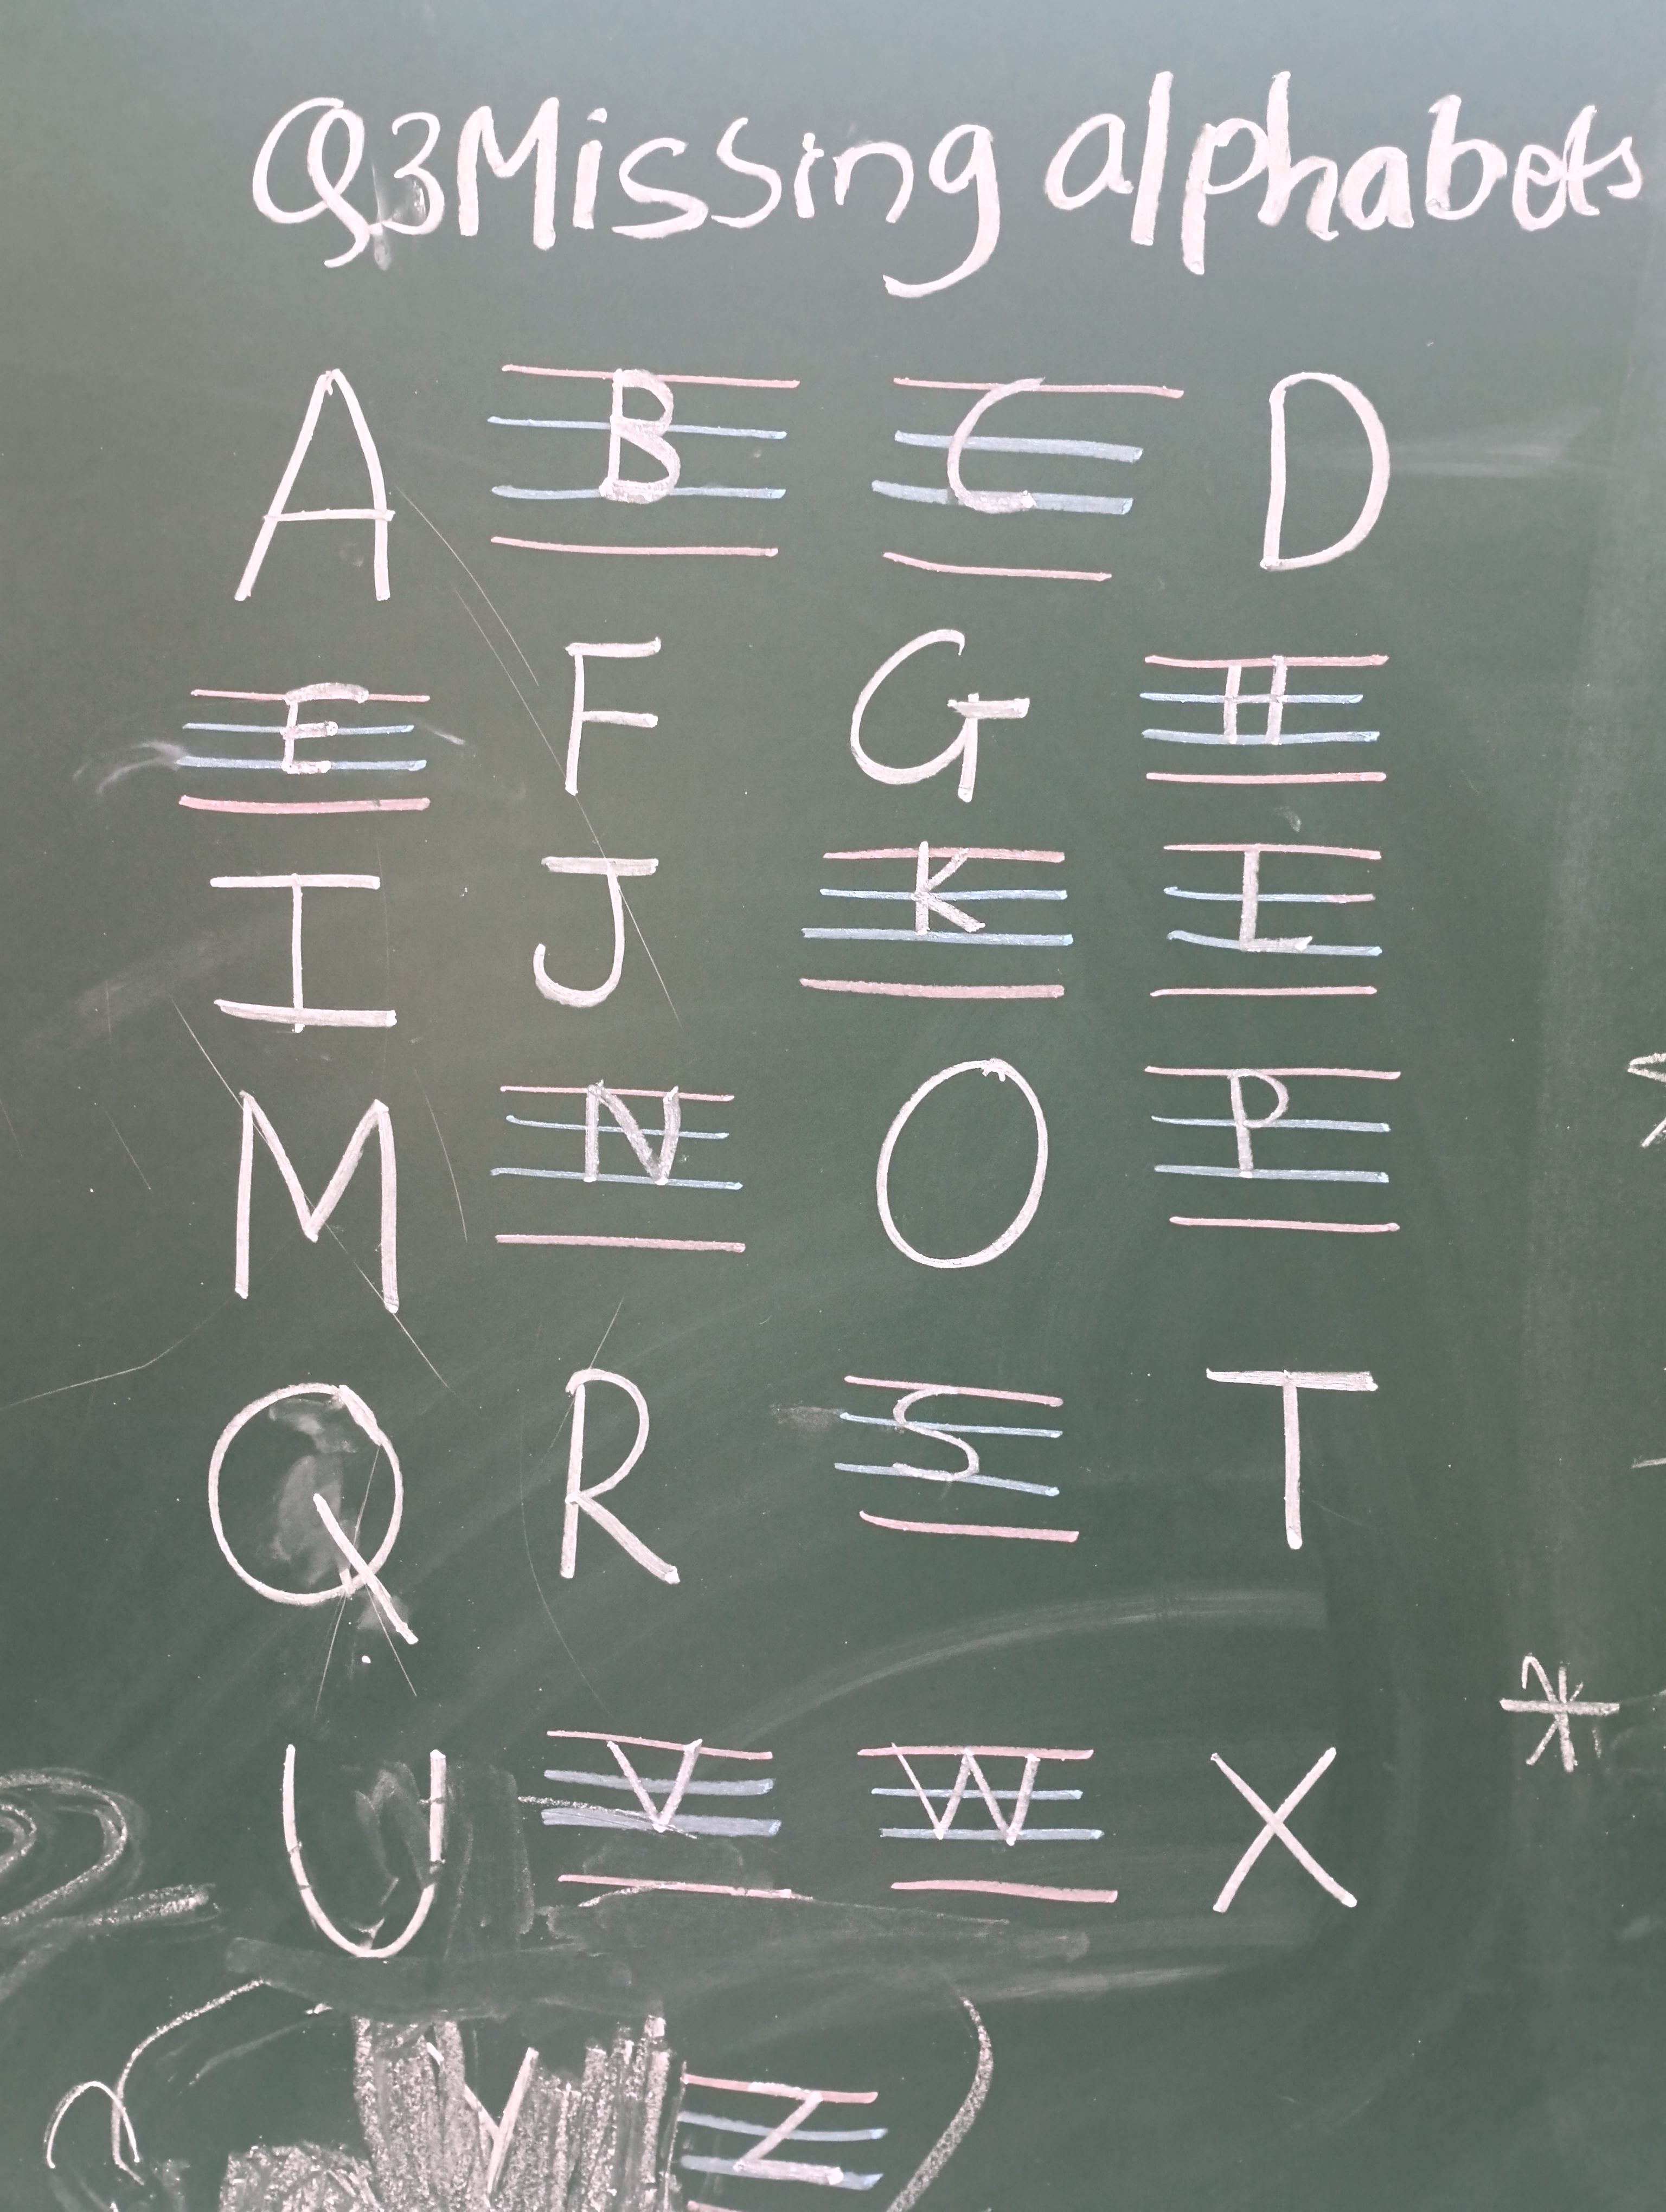 Q3 Missing alphabets
A B C D
E F G H
I J K L
M N O P
Q R S T
U V W X
Y Z